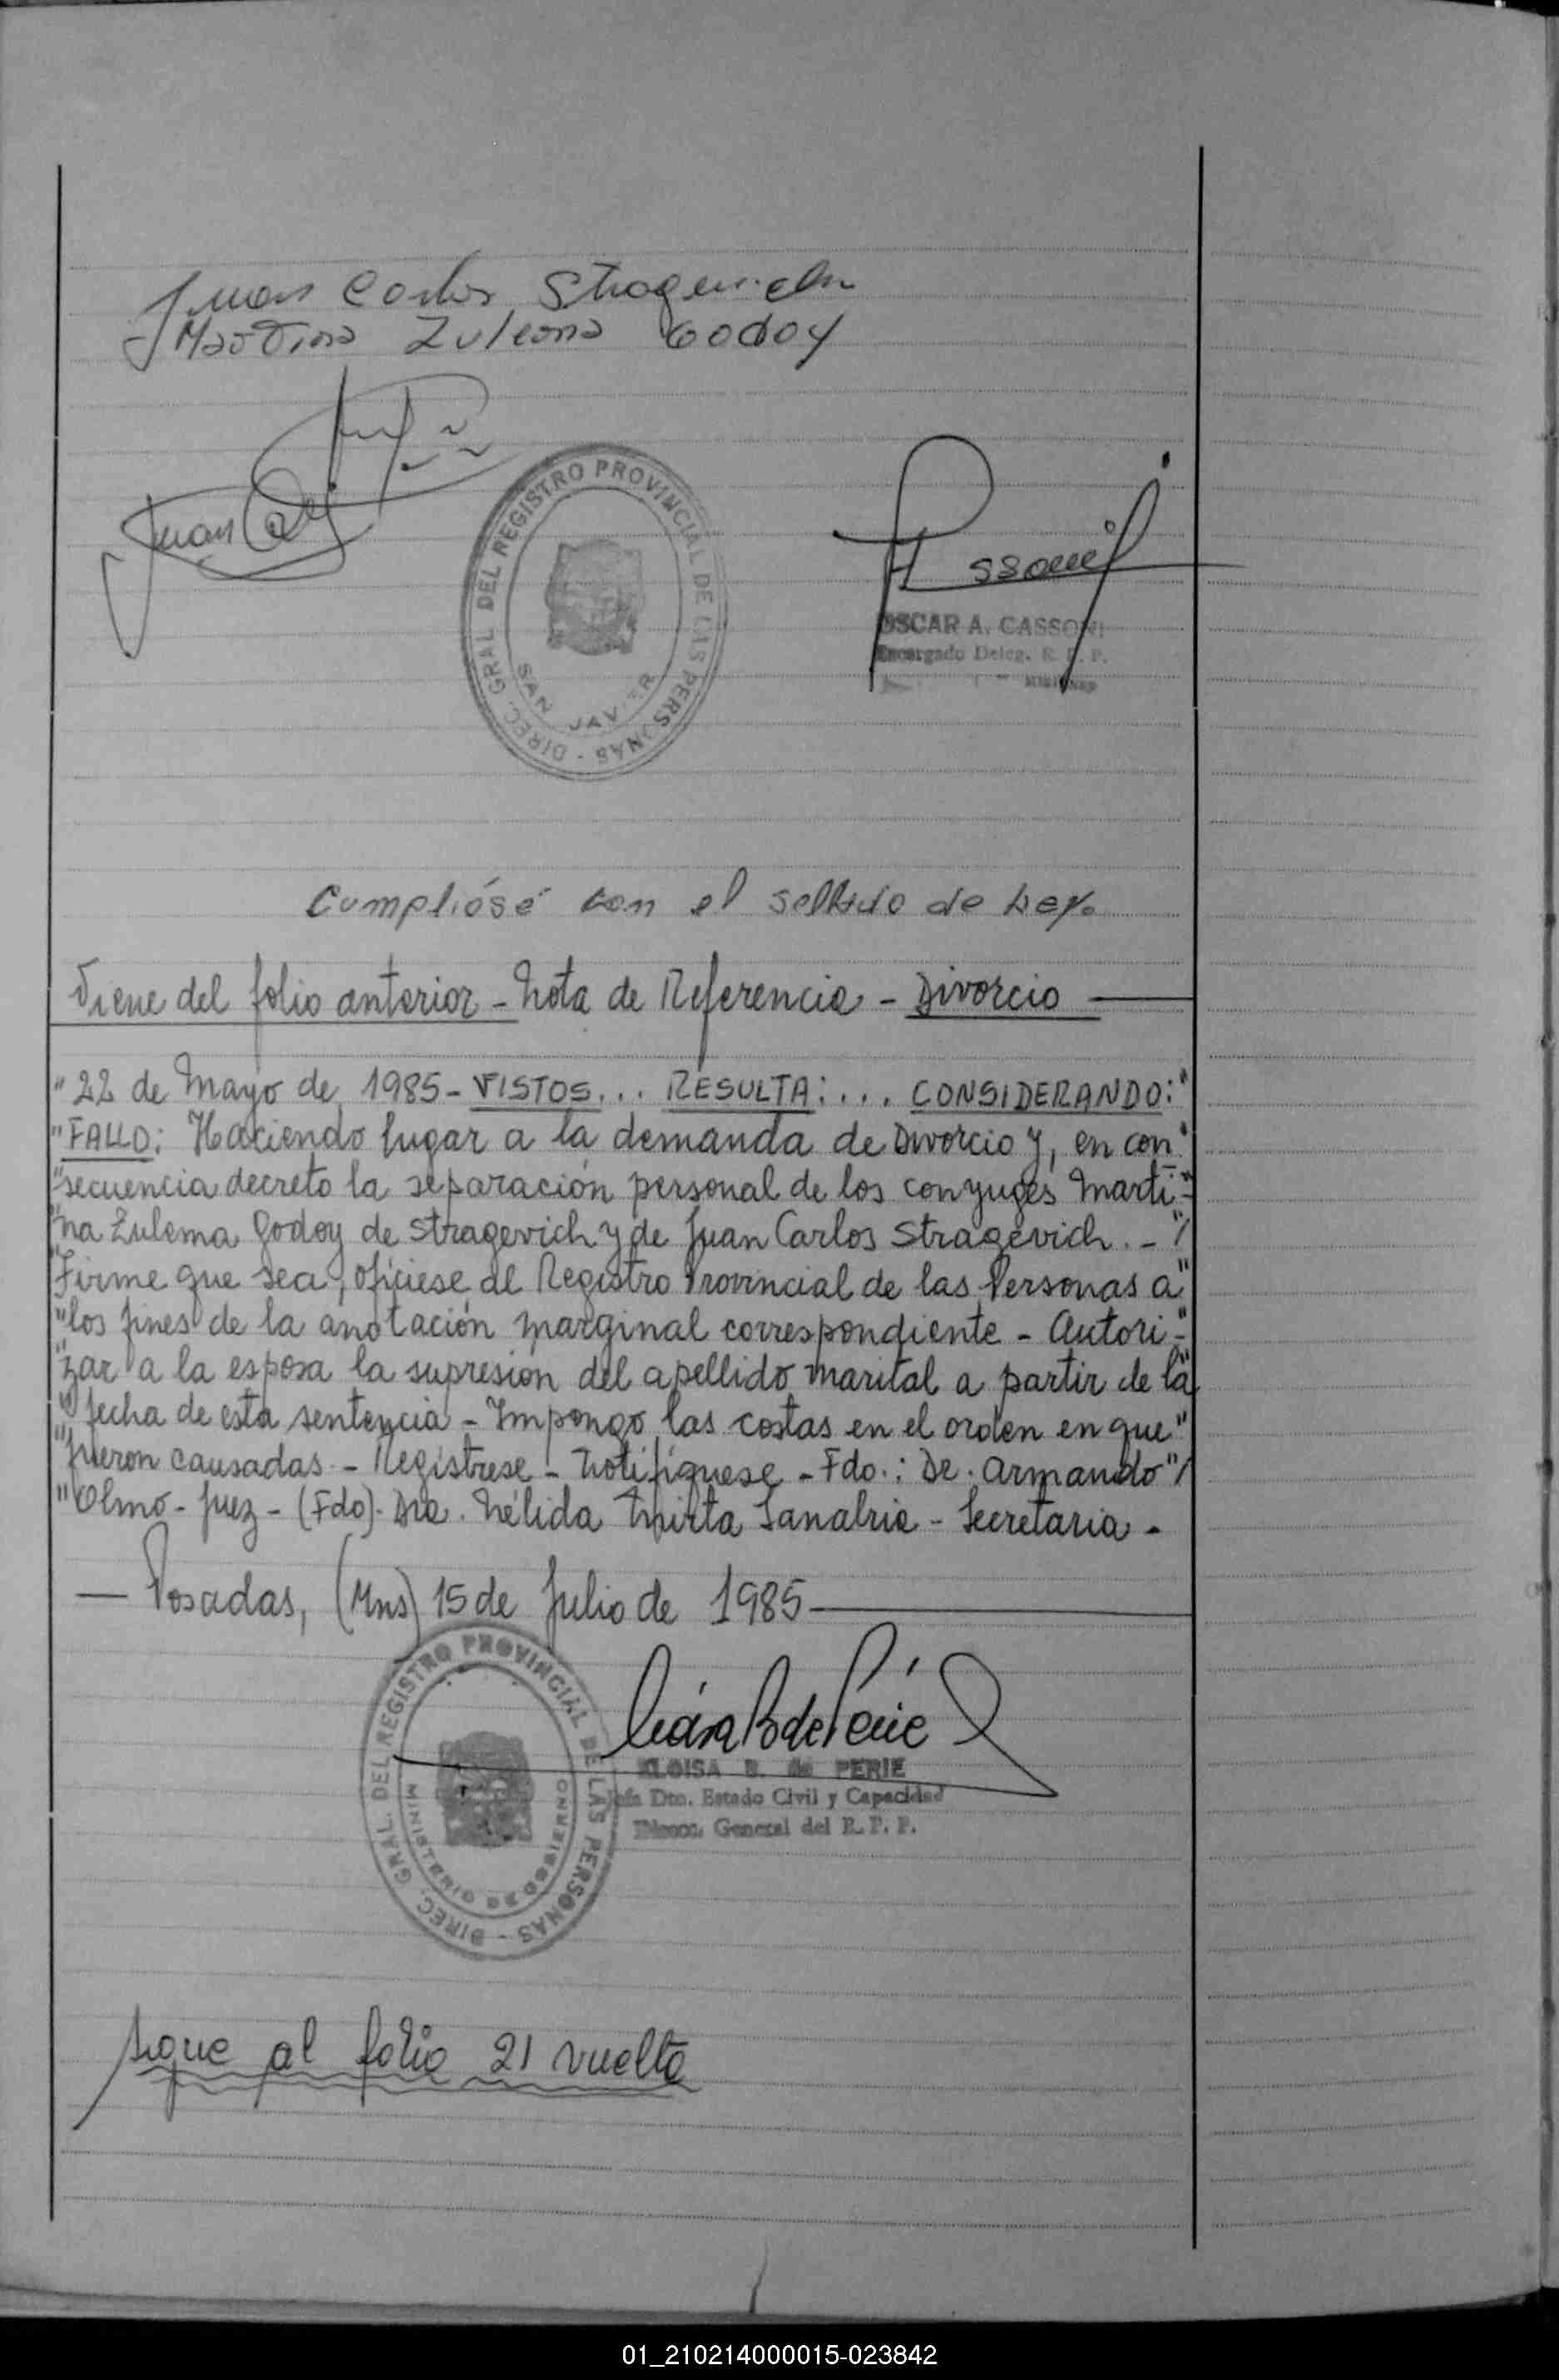 Juan Carlos Stragevich
Martina Zulema Godoy
Juan Car
DIREC. GRAL. DEL REGISTRO PROVINCIAL DE LAS PERSONAS -
SAN JAVIER
OSCAR A. CASSONI
Encargado Deleg. R. P. P.
MISIONES
Cumpliósé con el sellado de Ley.
Viene del folio anterior - Nota de Referencia - Divorcio
"22 de Mayo de 1985 - VISTOS... RESULTA: ... CONSIDERANDO:"
"FALLO: Haciendo lugar a la demanda de Divorcio y, en con"
"secuencia decreto la separación personal de los conyuges Marti-"
"na Zulema Godoy de Stragevich y de Juan Carlos Stragevich. - "/
"Firme que sea, ofíciese al Registro Provincial de las Personas a"
"los fines de la anotación marginal correspondiente - Autori-"
"zar a la esposa la supresión del apellido marital a partir de la"
"fecha de esta sentencia - Impongo las costas en el orden en que"
"fueron causadas - Registrese - Notifíquese - Fdo.: Dr. Armando"/
"Olmo - Juez - (Fdo). Dra. Nélida Mirta Sanabria - Secretaria -
— Posadas, (Mns) 15 de Julio de 1985 —
DIREC. GRAL. DEL REGISTRO PROVINCIAL DE LAS PERSONAS -
MINISTERIO DE GOBIERNO
ELOISA B. de PERIE
Jefa Dto. Estado Civil y Capacidad
Direcc. General del R. P. P.
sigue al folio 21 vuelta
01_210214000015-023842